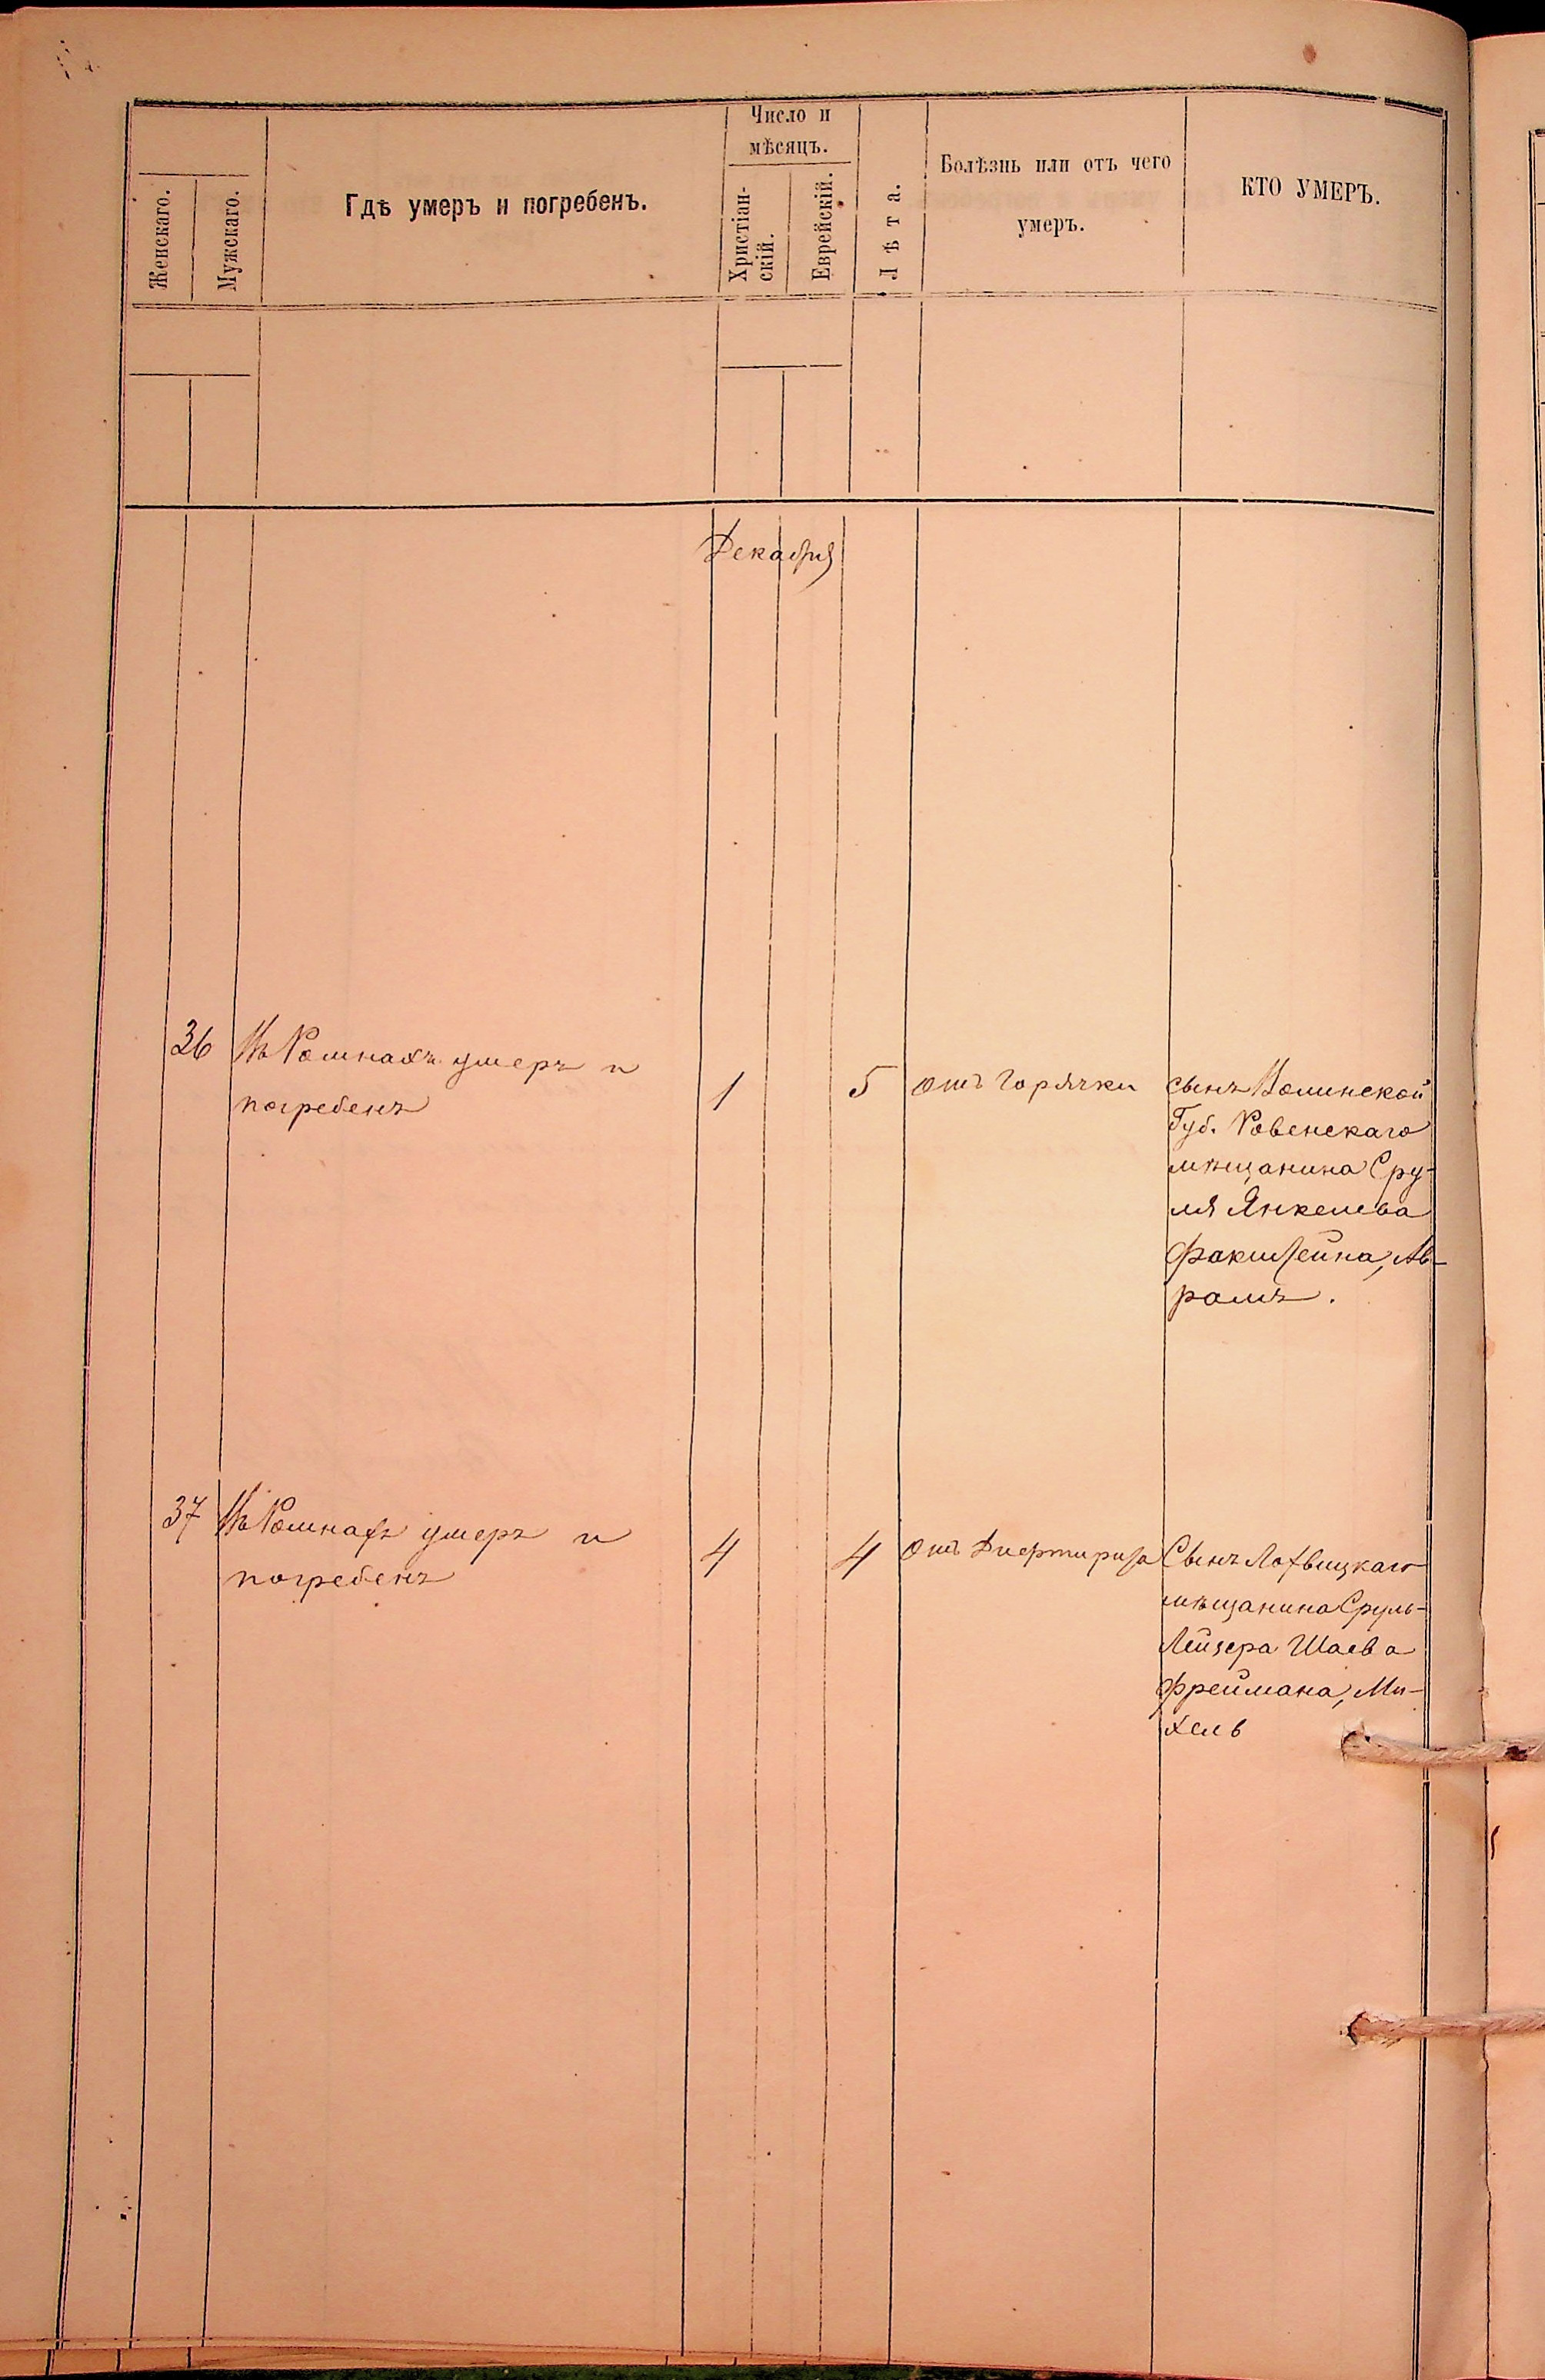 Число и
мѣсяцъ.
Женскаго.
Мужскаго.
Гдѣ умеръ и погребенъ.
Христіан-
скій.
Еврейскій.
Лѣта.
Болѣзнь или отъ чего
умеръ.
КТО УМЕРЪ.
Декабря
36
Въ Ромнахъ умеръ и
погребенъ
1
5
отъ горячки
сынъ Волинской
Губ. Ровенскаго
мѣщанина Сру-
ля Янкелева
Факштейна, Ав-
рамъ.
37
Въ Ромнахъ умеръ и
погребенъ
4
4
отъ
Сынъ Лохвицкаго
мѣщанина Сруль-
Лейзера Шаева
Фреймана, Ми-
хель